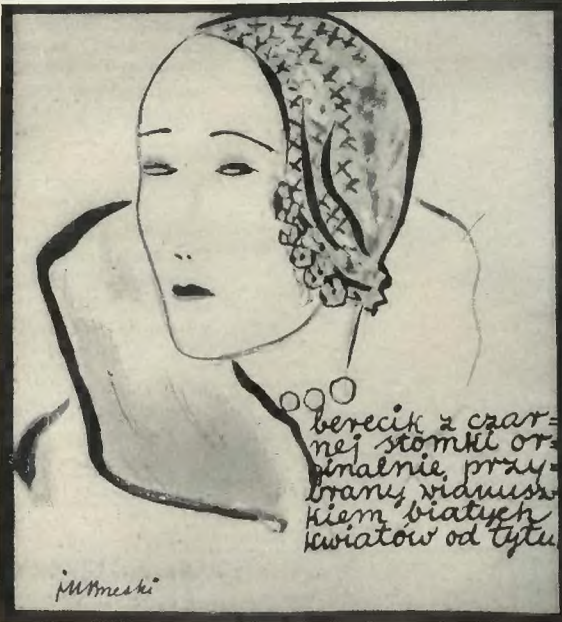 berecik z czar=
nej słomki or=
ginalnie przy=
brany wianusz=
kiem białych
kwiatów od tyłu